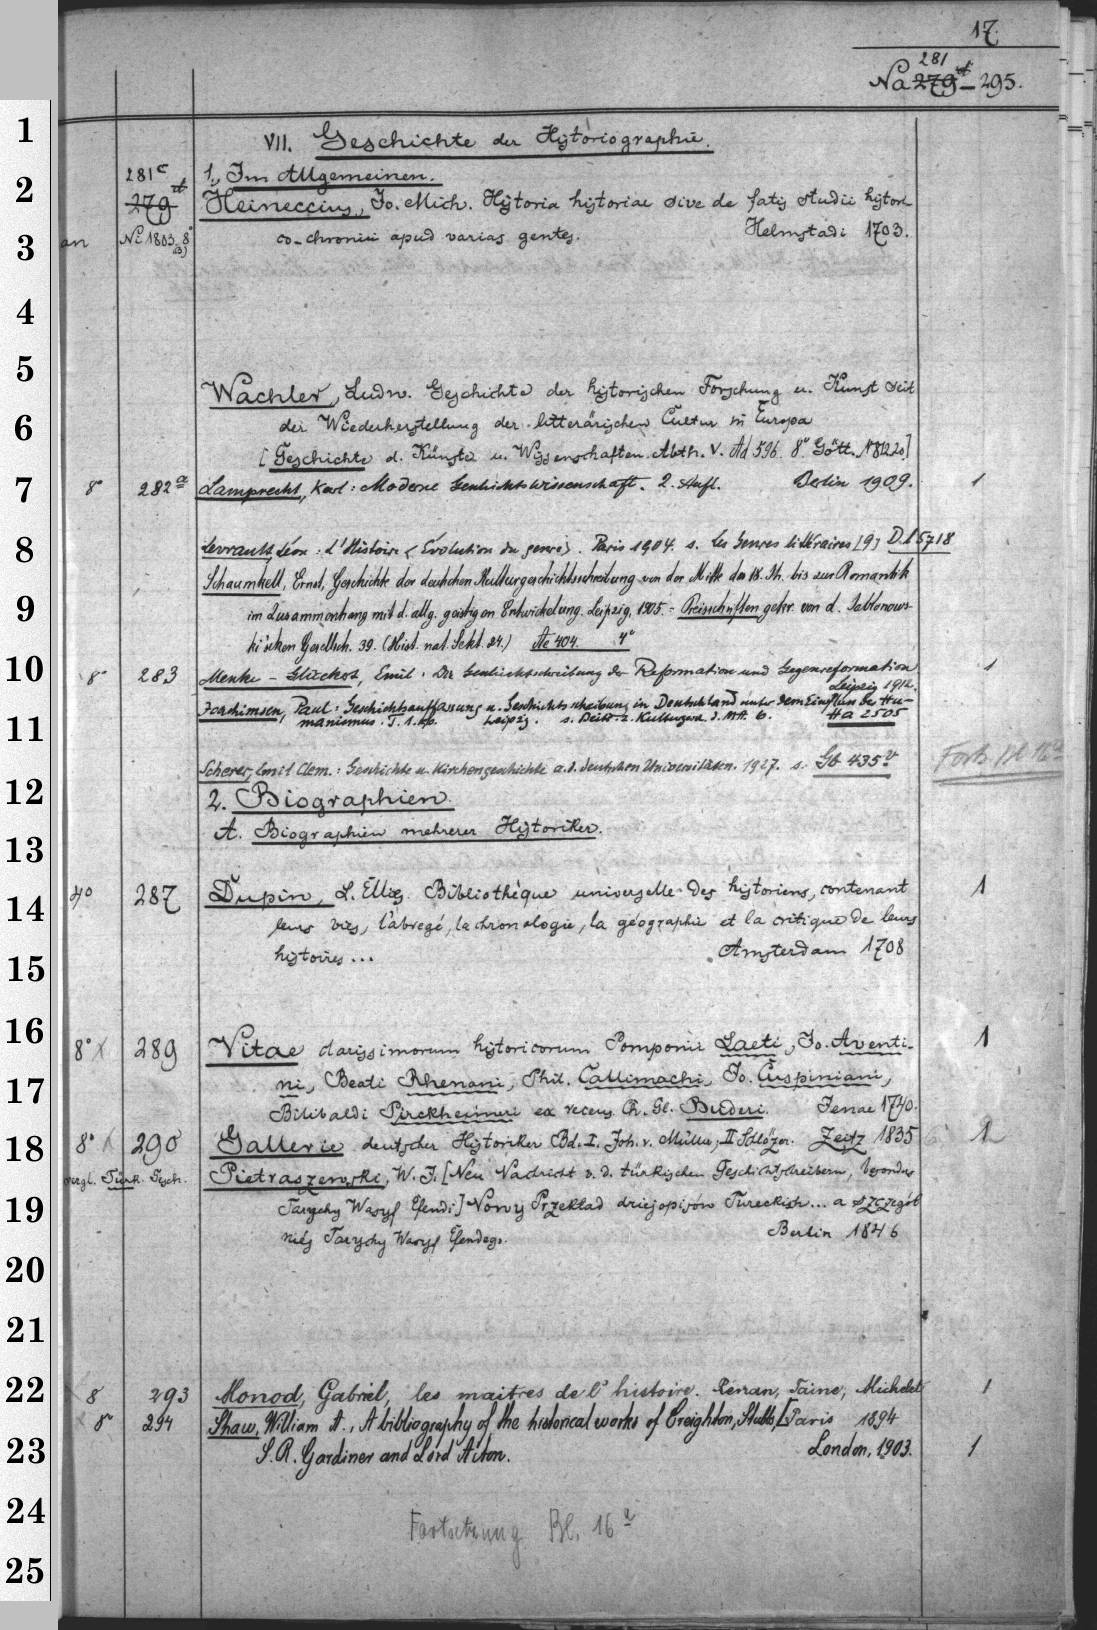 17.
281
Na 279 - 295.
1
VII. Geschichte der Historiographie.
281c
1., Im Allgemeinen.
2
279
Heineccius, Jo. Mich. Historia historiae sive de fatis studii histori
3
an
Ni 1803, 8°
co-chronici apud varias gentes. Helmstadi 1703.
4
5
Wachler, Ludw. Geschichte der historischen Forschung u. Kunst seit
6
der Wiederherstellung der litterärischen Cultur in Europa
[Geschichte d. Künste u. Wissenschaften. Abth. V. Ad 596 8° Gött. 1812.20]
7
8° 282a Lamprecht, Karl: Moderne Geschichtswissenschaft. 2. Aufl. Berlin 1909. 1
8
Levrault, Léon: L'Histoire (Évolution du genre). Paris 1904. s. Les Genres littéraires [9] Dl 5718
Schaumkell, Ernst, Geschichte der deutschen Kulturgeschichtsschreibung von der Mitte des 18. Jh. bis zur Romantik
9
im Zusammenhang mit d. allg. geistigen Entwickelung. Leipzig, 1905. = Preisschriften gekr. von d. Jablonows-
ki'schen Gesellsch. 39. (Hist. nat. Sekt. 24.) Ae 404. 4°
10
8° 283 Menke-Glückert, Emil: Die Geschichtschreibung der Reformation und Gegenreformation 1
Leipzig 1912.
Joachimsen, Paul: Geschichtsauffassung u. Geschichtschreibung in Deutschland unter dem Einfluss des Hu-
11
manismus. T. 1. Leipzig. s. Beitr. z. Kulturgesch. d. MA. 6. Ha 2505
Scherer, Emil Clem.: Geschichte u. Kirchengeschichte a. d. deutschen Universitäten. 1927. s. Gb 435v
Forts. Bl. 16a
12
2. Biographien.
13
A. Biographien mehrerer Historiker.
14
4° 287 Dupin, L. Ellies. Bibliothèque universelle des historiens, contenant 1
leurs vies, l'abregé, la chronologie, la géographie et la critique de leurs
15
histoires... Amsterdam 1708
16
8° 289 Vitae clarissimorum historicorum Pomponii Laeti, Jo. Aventi- 1
17
ni, Beati Rhenani, Phil. Callimachi, Jo. Cuspiniani,
Bilibaldi Pirckheimeri ex recens. Ch. Gl. Buderi. Jenae 1740.
18
8° 290 Gallerie deutscher Historiker Bd. I. Joh. v. Müller, II Schlözer. Zeitz 1835 1
vergl. Türk. Gesch.
Pietraszewski, W. J. [Neu Nachricht v. d. türkischen Geschichtschreibern, besonders
19
Tarychy Wasyf Efendi] Nowy Przekład dziejopisów Tureckich... a szczegól
niéj Tarychy Wasyf Efendego. Berlin 1846
20
21
22
8 293 Monod, Gabriel, les maitres de l'histoire. Renan, Taine, Michelet 1
8° 294 Shaw, William A., A bibliography of the historical works of Creighton, Stubbs, [Paris 1894
23
S. R. Gardiner and Lord Acton. London, 1903. 1
24
Fortsetzung Bl. 16a
25